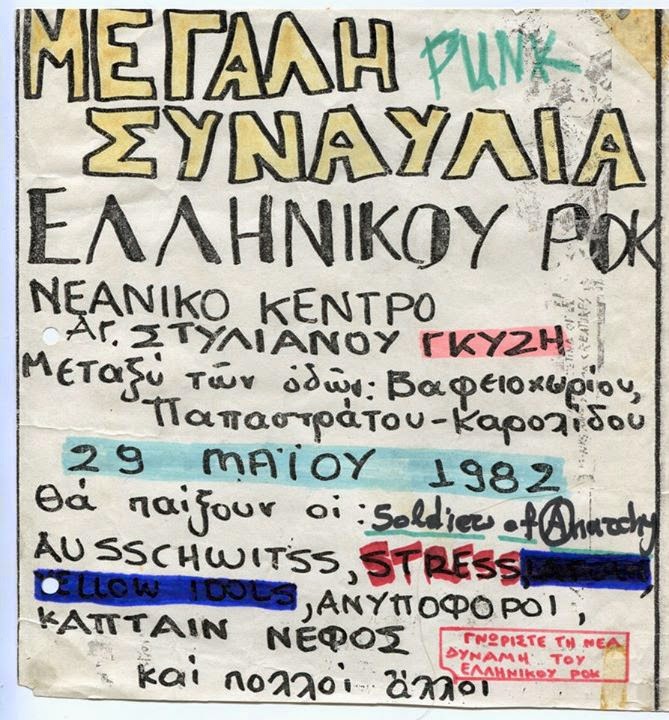 ΜΕΓΑΛΗ PUNK
ΣΥΝΑΥΛΙΑ
ΕΛΛΗΝΙΚΟΥ ΡΟΚ
ΝΕΑΝΙΚΟ ΚΕΝΤΡΟ
ΑΓ. ΣΤΥΛΙΑΝΟΥ ΓΚΥΖΗ
Μεταξύ τών όδών: Βαφειοχωρίου,
Παπαστράτου-Καρολίδου
29 ΜΑΪΟΥ 1982
Θά παίξουν οι: Soldiers of Anarchy
AUSSCHWITSS, STRESS,
YELLOW IDOLS, ΑΝΥΠΟΦΟΡΟΙ,
ΚΑΠΤΑΙΝ ΝΕΦΟΣ
και πολλοί άλλοι
ΓΝΩΡΙΣΤΕ ΤΗ ΝΕΑ
ΔΥΝΑΜΗ ΤΟΥ
ΕΛΛΗΝΙΚΟΥ ΡΟΚ